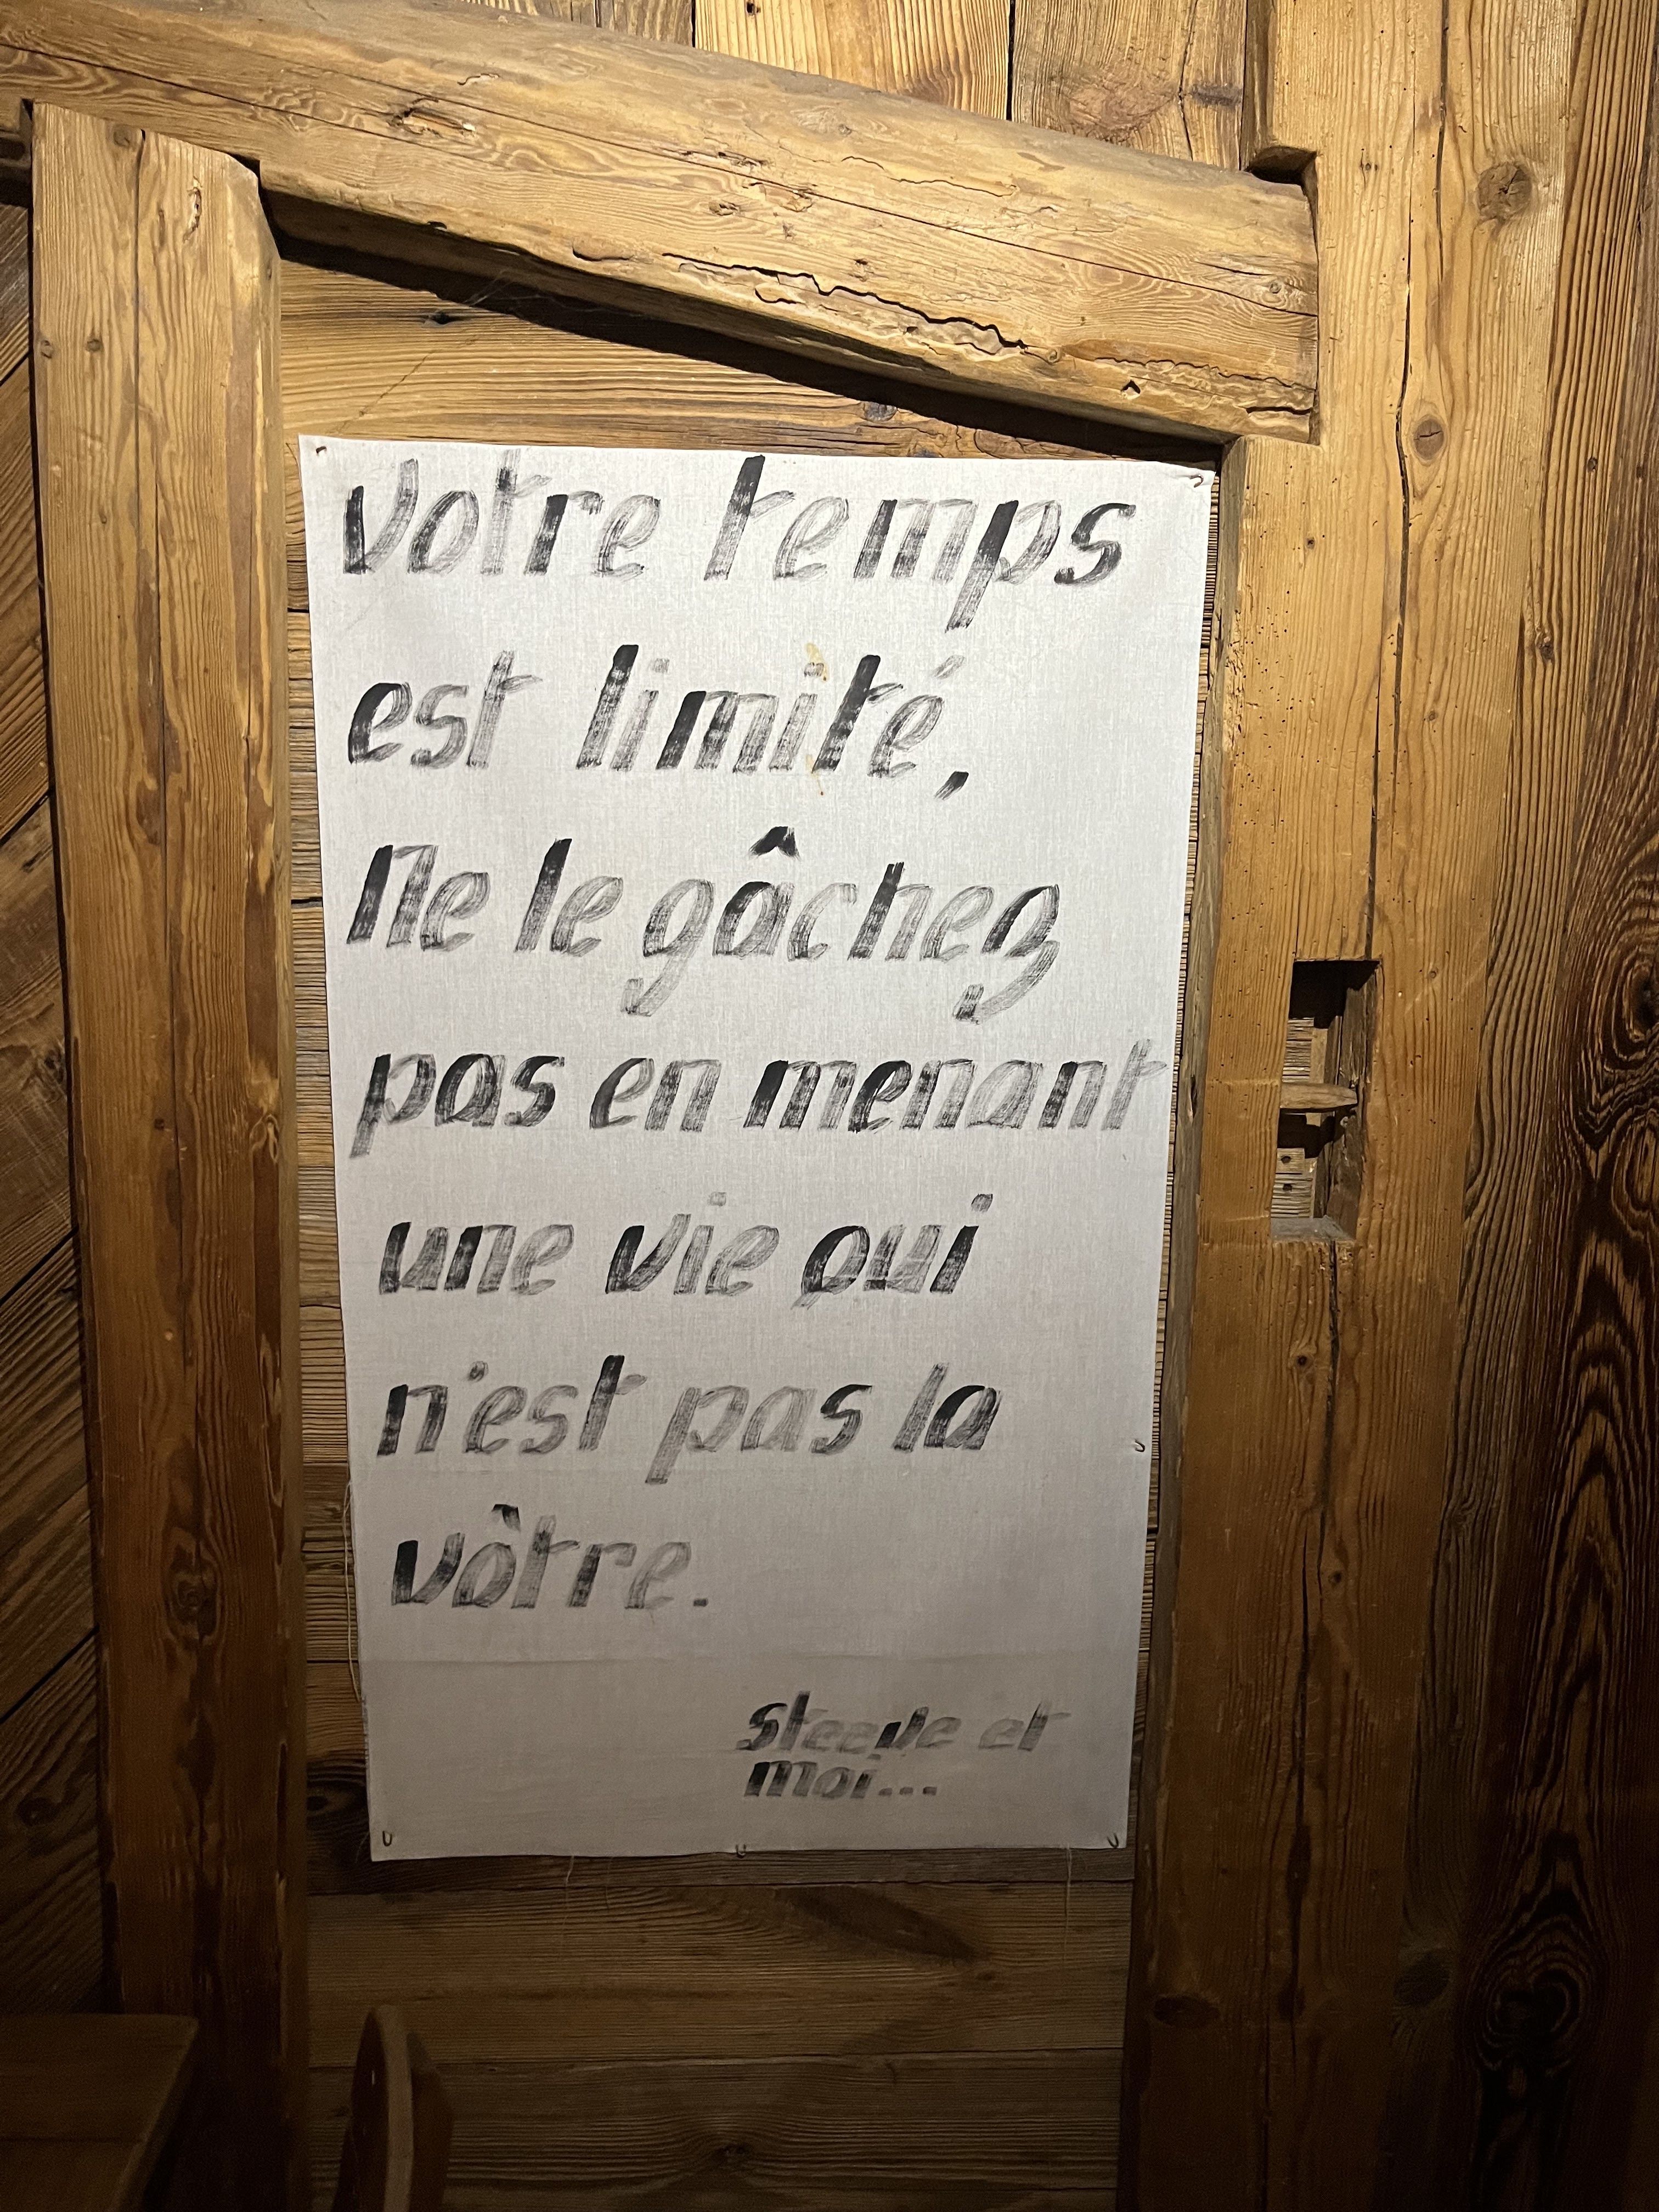 votre temps
est limité,
Ne le gâchez
pas en menant
une vie qui
n'est pas la
vòtre.
steeve et
moi...